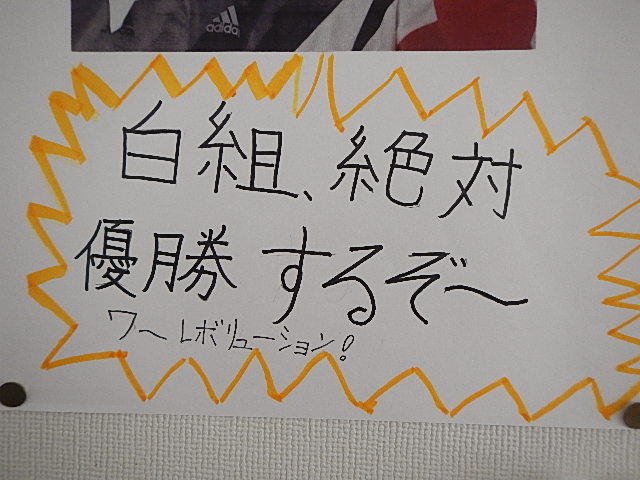 adidas
白組、絶対
優勝するぞ〜
ワ〜レボリューション!